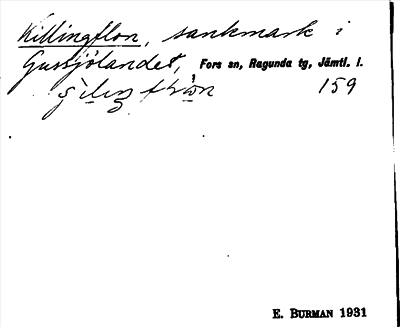 Killingflon, sankmark i
Gussjölandet, Fors sn, Ragunda tg, Jämtl. l.
159
E. BURMAN 1931